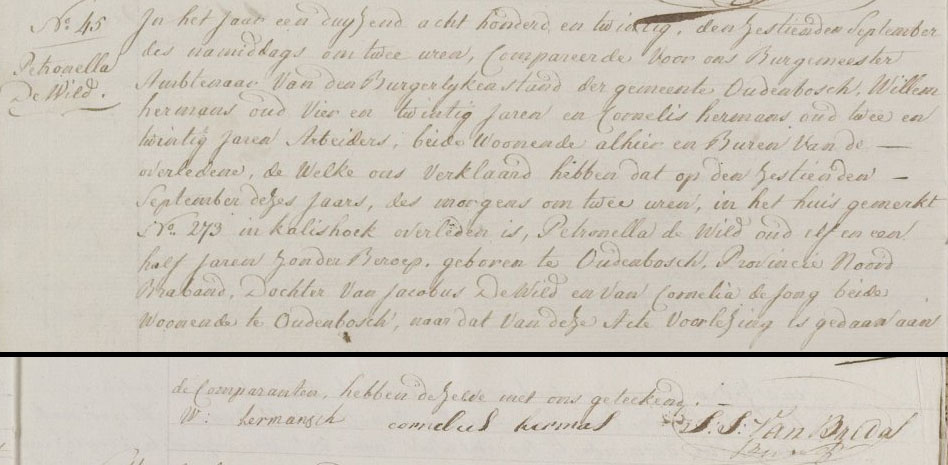 No. 45
Petronella
De Wild.
In het Jaar een duyzend acht honderd en twintig, den Zestienden September
des namiddags om twee uren, Compareerde Voor ons Burgemeester
Ambtenaar Van den Burgerlyken stand der gemeente Oudenbosch, Willem
hermans oud Vier en twintig Jaren en Cornelis hermans oud twee en
twintig Jaren Arbeiders, beide Woonende alhier en Buren Van de —
overledene, de Welke ons Verklaard hebben dat op den Zestienden —
September dezes Jaars, des morgens om twee uren, in het huis gemerkt
No. 273 in kalishoek overleden is, Petronella de Wild oud elf en een
half Jaren Zonder Beroep, geboren te Oudenbosch, Provincie Noord
Braband, Dochter Van Jacobus De Wild en Van Cornelia de Jong beide
Woonende te Oudenbosch, naar dat Van deze Acte Voorlezing is gedaan aan
de Comparanten, hebben dezelve met ons geteekend. —
W: hermansch cornelus hermas Van